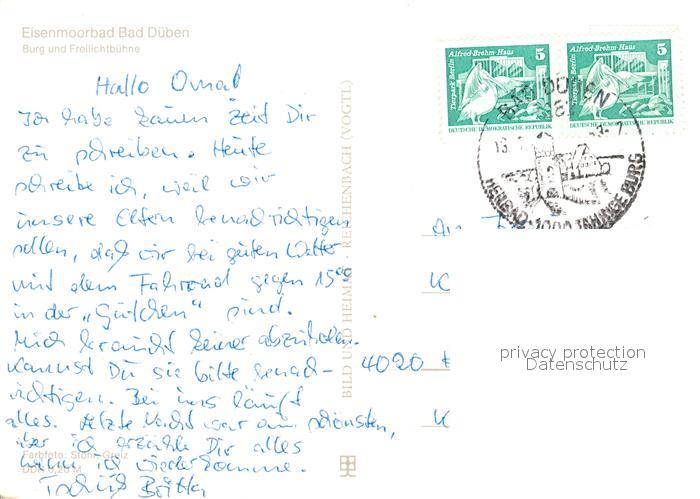 Eisenmoorbad Bad Düben
Burg und Freilichtbühne
Hallo
Ich habe kaum Zeit Dir
zu schreiben. Heute
schreibe ich, weil wir
unsere Eltern benachrichtigen
sollen, daß wir bei guten Wetter
mit dem Fahrrad gegen 15⁰⁰
in der „ “ sind.
Mich braucht keiner abzuholen.
Kannst Du sie bitte benach-
richtigen. Bei uns läuft
alles. Letzte Nacht war am schönsten,
aber ich erzähle Dir alles
wenn ich wiederkomme.
Tschüß
Farbfoto: Stohr, Greiz
DDR 0,20 M
BILD UND HEIMAT · REICHENBACH (VOGTL)
Tierpark Berlin Alfred-Brehm-Haus 5
DEUTSCHE DEMOKRATISCHE REPUBLIK
Tierpark Berlin Alfred-Brehm-Haus 5
DEUTSCHE DEMOKRATISCHE REPUBLIK
BAD DÜBEN
1000 JAHRIGE BURG
4020
privacy protection
Datenschutz